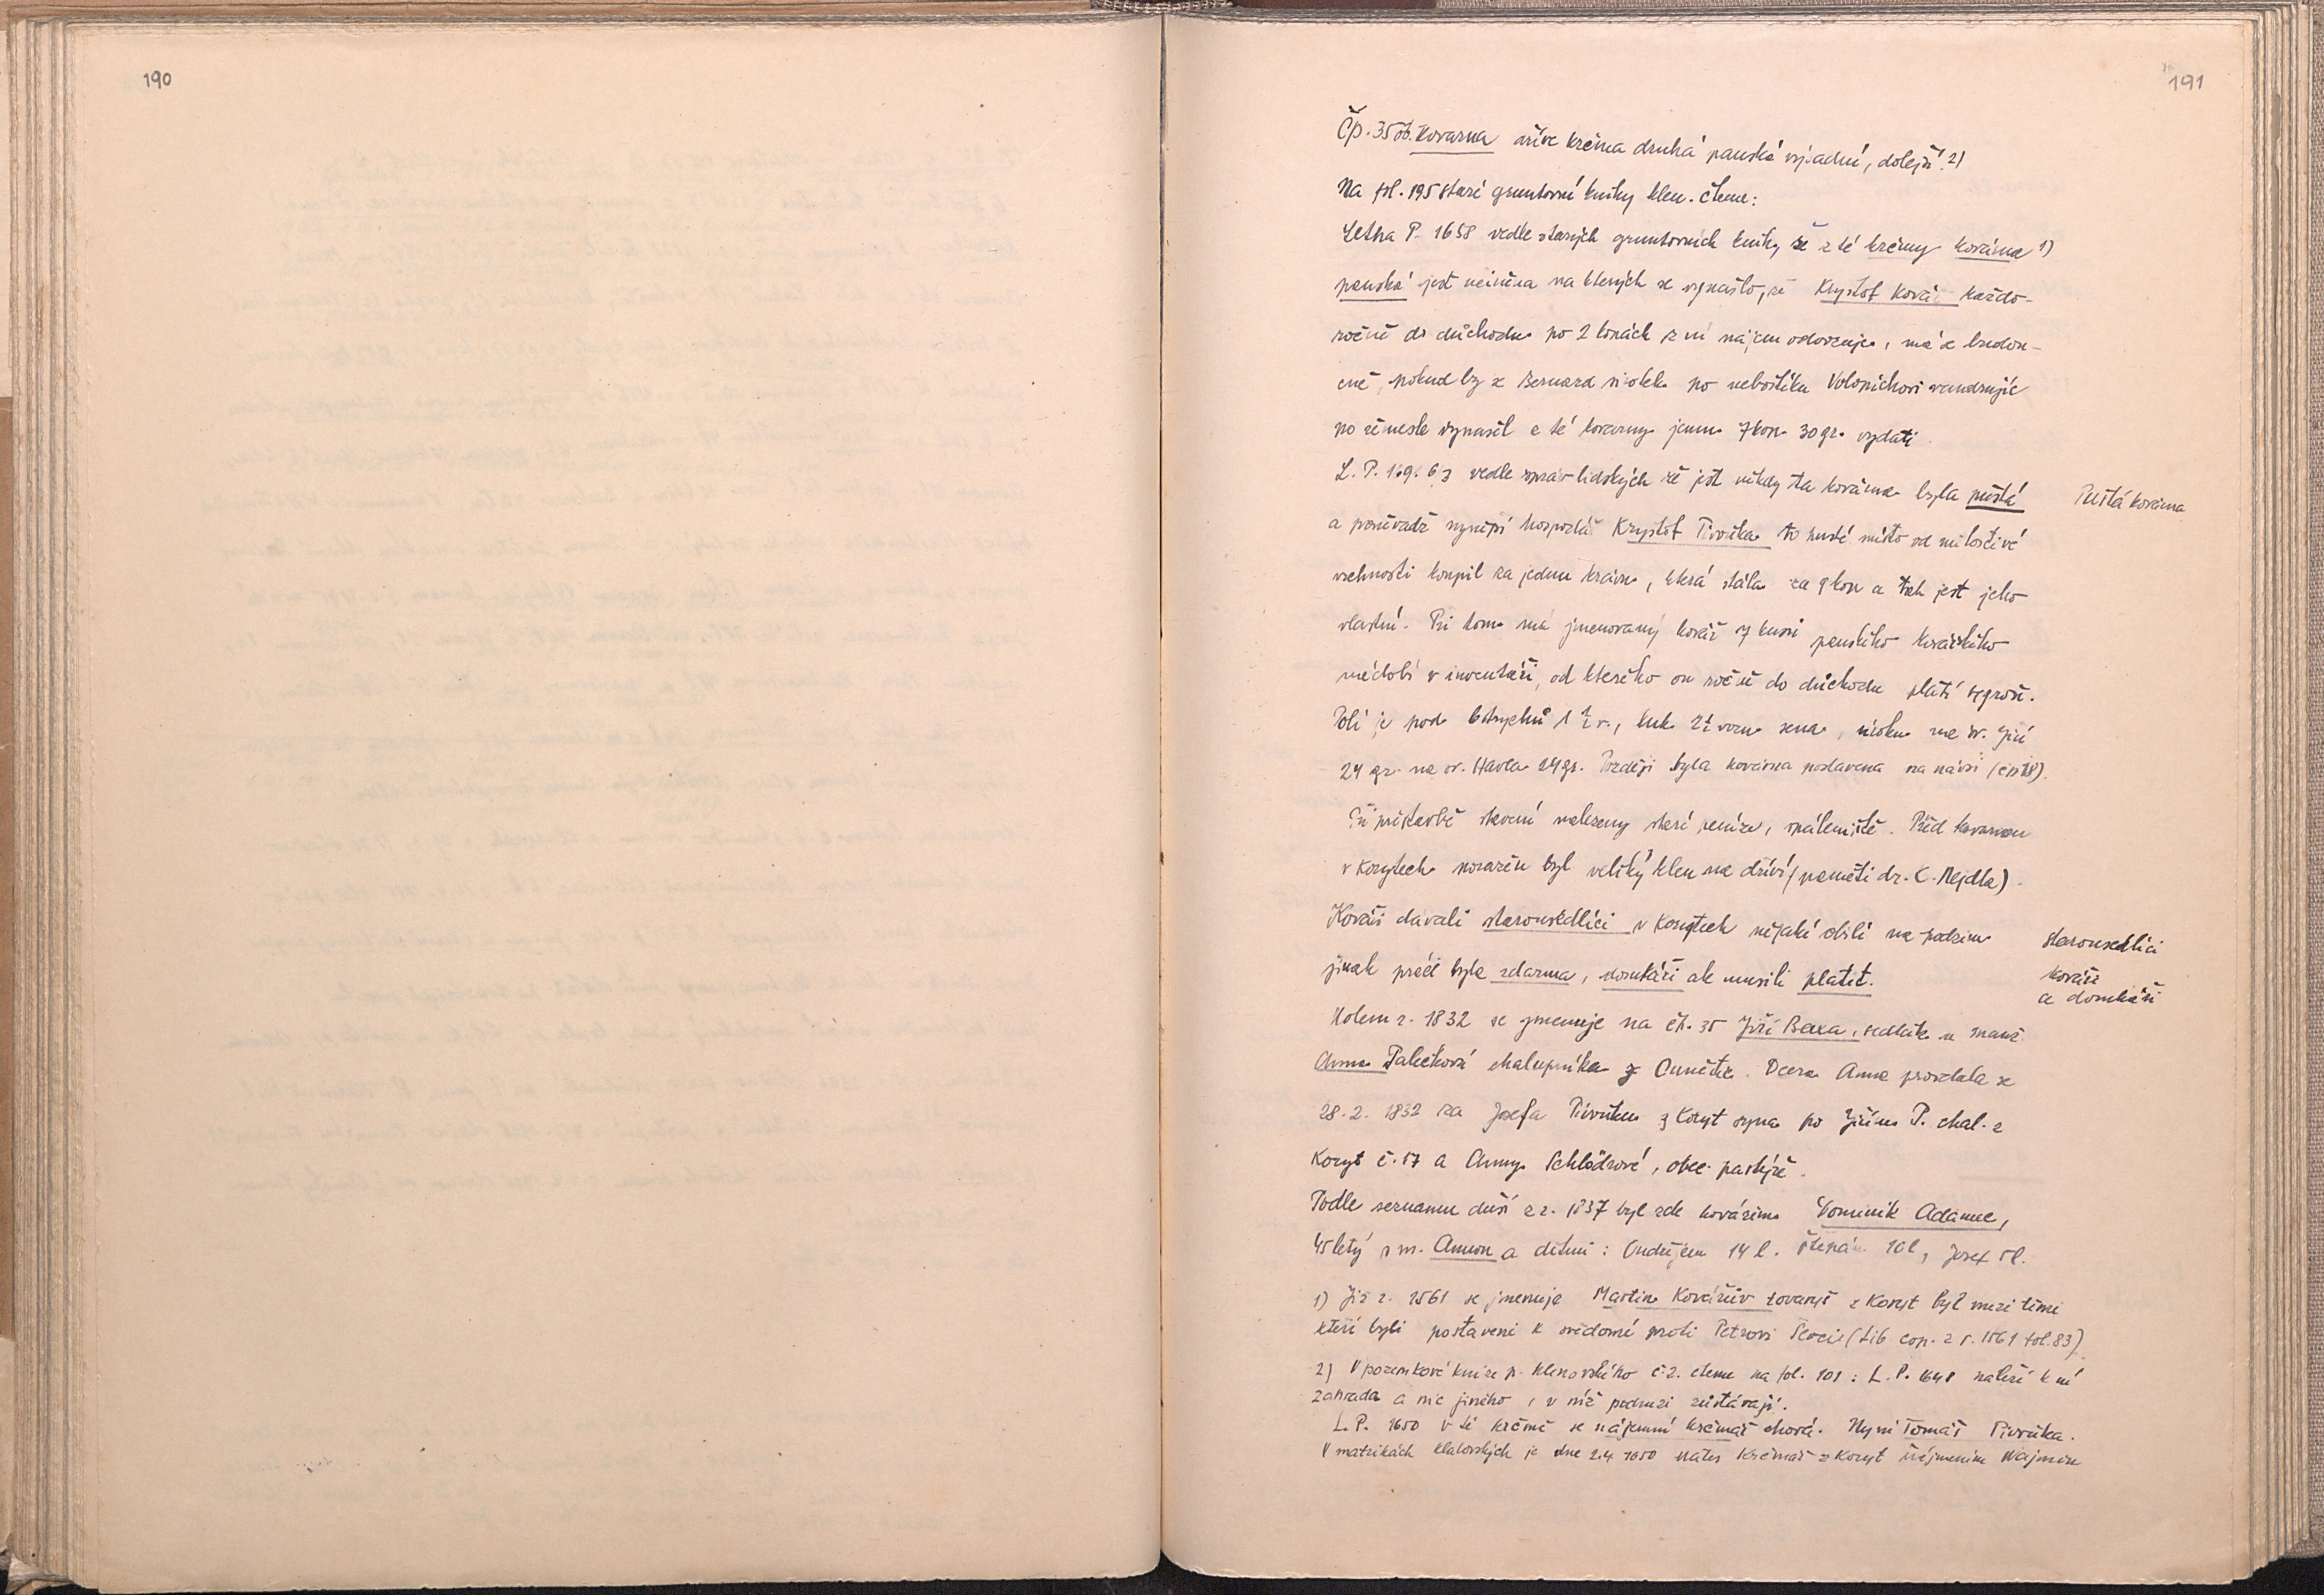 190
191
Čp. 35 ob. Kovarna dříve krčma druhá panská výsadní, dolejší. 2)
Na fol. 195 staré gruntovní knihy klen. čteme:
Letha P. 1658 vedle starých gruntovních knih, že z té krčmy kovárna 1)
panská jest učiněna na kterých se vynašlo, že Kryštof Kovář každo-
ročně do důchodu po 2 kopách z ní nájem odvozuje, má se budou-
cně, pokud by se Bernard sirotek po nebožtíku Volopichovi vandrujíc
po řemesle vynašel z té kovárny jemu 7 kop 30 gr. vydati.
L. P. 169. 63 vedle zpráv lidských že jest někdy ta kovárna byla pustá
Pustá kovárna
a poněvadž nynější hospodář Kryštof Pivoňka to pusté místo od milostivé
vrchnosti koupil za jednu krávu, která stála za 9 kop a tak jest jeho
vlastní. Při tom má jmenovaný kovář 7 kusů panského kovářského
nádobí v inventáři, od kterého on ročně do důchodu platí groš.
Polí je pod 6 strychů 1 1/2 v., luk 2 1/2 vozu sena, úroku na sv. Jiří
24 gr. na sv. Havla 24 gr. Později byla kovárna postavena na návsi (čp 18).
Při přístavbě stavení nalezeny staré peníze, spáleniště. Před kovárnou
v Korytech poražen byl veliký klen na dříví (paměti dr. C. Nejdla).
Kováři davali starousedlíci v Korytech nějaké obilí na podzim
starousedlíci
jinak práce byla zdarma, domkáři ale musili platit.
kovář
a domkáři
Kolem r. 1832 se jmenuje na čp. 35 Jiří Baxa, sedlák a manž.
Anna Palečková chalupníka z Ounětic. Dcera Anna provdala se
28. 2. 1832 za Josefa Pivoňku z Koryt syna po Jiřím P. chal. z
Koryt č. 17 a Anny Schlödrové, obec. pastýře.
Podle seznamu duší z r. 1837 byl zde kovářem Dominik Adamec,
45letý s m. Annou a dětmi: Ondřejem 14 l. Štěpán 10 l, Josef 5 l.
1) Již r. 1561 se jmenuje Martin Kovářův tovaryš z Koryt byl mezi těmi
kteří byli postaveni k svědomí proti Petrovi (Lib. cop. z r. 1561 fol. 83).
2) V pozemkové knize p. Klenovského č. 2. čteme na fol. 101: L. P. 1648 náleží k ní
zahrada a nic jiného, v níž podruzi zůstávají.
L. P. 1650 v té krčmě se nájemní krčmář chová. Nyní Tomáš Pivoňka.
V matrikách klatovských je dne 2.4. 1650 Mates Krčmář z Koryt příjmením Wajmin